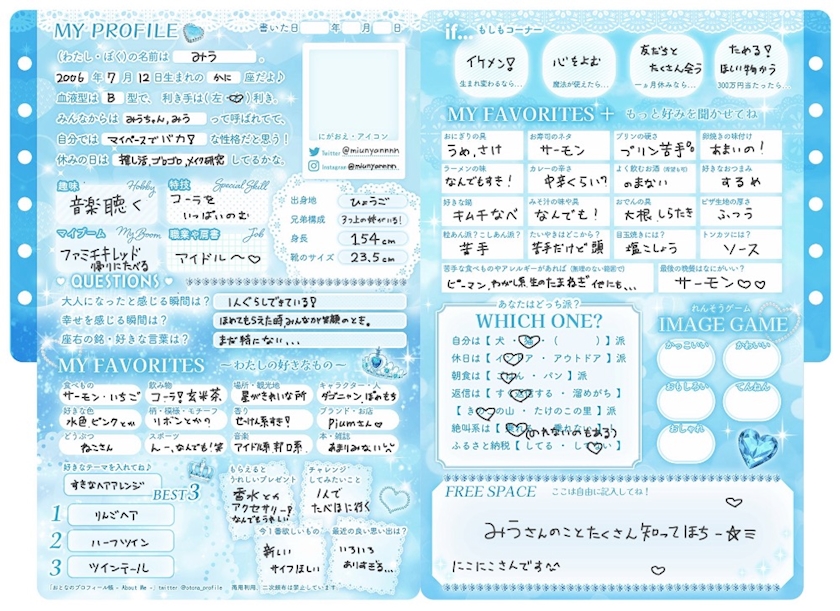 MY PROFILE 書いた日 年 月 日
(わたし・ぼく)の名前は みう 。
2006 年 7 月 12 日生まれの かに 座だよ♪
血液型は B 型で、利き手は(左・ )利き。
みんなからは みうちゃん,みう って呼ばれてて、
自分では マイペースでバカ! な性格だと思う!
休みの日は 推し活,ゴロゴロ,メイク研究 してるかな。
にがおえ・アイコン
Twitter @miunyannnh
Instagram @miunyannnh
趣味 Hobby
音楽聴く
特技 Special Skill
コーラを
いっぱいのむ
マイブーム My Boom
ファミチキレッド
帰りにたべる
職業や肩書 Job
アイドル〜♡
出身地 ひょうご
兄弟構成 3つ上の姉がいる!
身長 154cm
靴のサイズ 23.5cm
QUESTIONS
大人になったと感じる瞬間は? 1人ぐらしできている!
幸せを感じる瞬間は? ほめてもらえた時みんなが笑顔のとき。
座右の銘・好きな言葉は? まだ特にない、、、
MY FAVORITES 〜わたしの好きなもの〜
食べもの サーモン・いちご
飲み物 コーラ!玄米茶
場所・観光地 星がきれいな所
キャラクター・人 ダッフィー,ぽめもち
好きな色 水色ピンクとか
柄・模様・モチーフ リボンとかの
香り せっけん系すき!
ブランド・お店 Piumさん♡
どうぶつ ねこさん
スポーツ んー、なんでも!笑
音楽 アイドル系邦ロ系
本・雑誌 あまりみない
好きなテーマを入れてね♪
すきなヘアアレンジ
BEST3
1 りんごヘア
2 ハーフツイン
3 ツインテール
もらえると
うれしいプレゼント
香水とか
アクセサリー!
なんでもうれしい
チャレンジ
してみたいこと
1人で
たべほに行く
今1番欲しいもの
新しい
サイフほしい
最近の良い思い出は?
いろいろ
ありすぎる...
「おとなのプロフィール帳 - About Me -」twitter @otona_profile 商用利用、二次頒布は禁止しています。
if... もしもコーナー
イケメン!
生まれ変わるなら...
心をよむ
魔法が使えたら...
友だちと
たくさん会う
一ヵ月休みなら...
ためる!
ほしい物かう
300万円当たったら...
MY FAVORITES + もっと好みを聞かせてね
おにぎりの具 うめ,さけ
お寿司のネタ サーモン
プリンの硬さ プリン苦手。
卵焼きの味付け あまいの!
ラーメンの味 なんでもすき!
カレーの辛さ 中辛くらい?
よく飲むお酒 のまない
好きなおつまみ するめ
好きな鍋 キムチなべ
みそ汁の味や具 なんでも!
おでんの具 大根しらたき
ピザ生地の厚さ ふつう
粒あん派?こしあん派? 苦手
たいやきはどこから? 苦手だけど頭
目玉焼きには? 塩こしょう
トンカツには? ソース
苦手な食べものやアレルギーがあれば(無理のない範囲で)
ピーマン,わかし系,生のたまねぎ,他にも...
最後の晩餐はなにがいい?
サーモン♡♡
あなたはどっち派?
WHICH ONE?
自分は【 犬 ・ ・( )】派
休日は【 イ ア ・ アウトドア 】派
朝食は【 ・ パン 】派
返信は【 する ・ 溜めがち 】
【 き の山 ・ たけのこの里 】派
絶叫系は【 】
(のれないのもある)
ふるさと納税【 してる ・ してない 】
れんそうゲーム
IMAGE GAME
かっこいい
かわいい
おもしろい
てんねん
おしゃれ
FREE SPACE ここは自由に記入してね!
みうさんのことたくさん知ってほちー☆
にこにこさんです